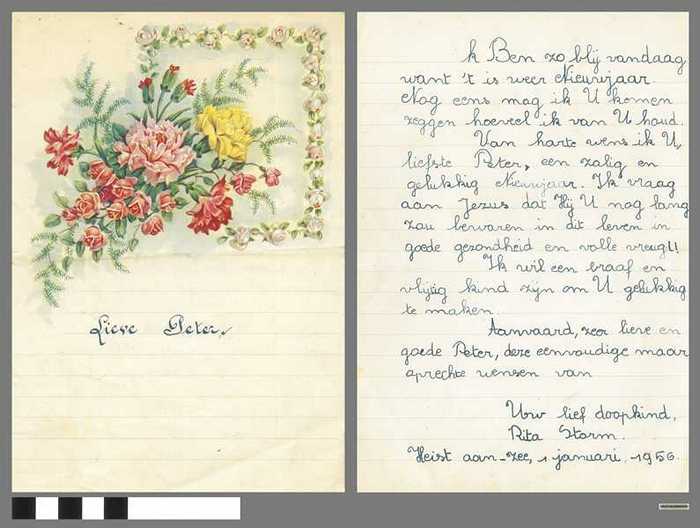 Lieve Peter,
k Ben zo blij vandaag
want 't is weer Nieuwjaar.
Nog eens mag ik U komen
zeggen hoeveel ik van U houd.
Van harte wens ik U,
liefste Peter, een zalig en
gelukkig Nieuwjaar. Ik vraag
aan Jezus dat Hij U nog lang
zou bewaren in dit leven in
goede gezondheid en volle vreugd!
Ik wil een braaf en
vlijtig kind zijn om U gelukkig
te maken.
Aanvaard, zeer lieve en
goede Peter, deze eenvoudige maar
oprechte wensen van
Uw lief doopkind,
Rita Storm.
Heist aan-Zee, 1 januari 1956.